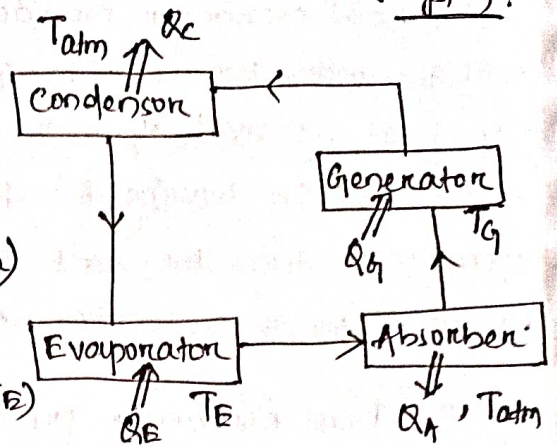 Tatm Qc
Condenson
Generator
QG TG
Evaporator
Absorber
QE TE
QA , Tatm
E)